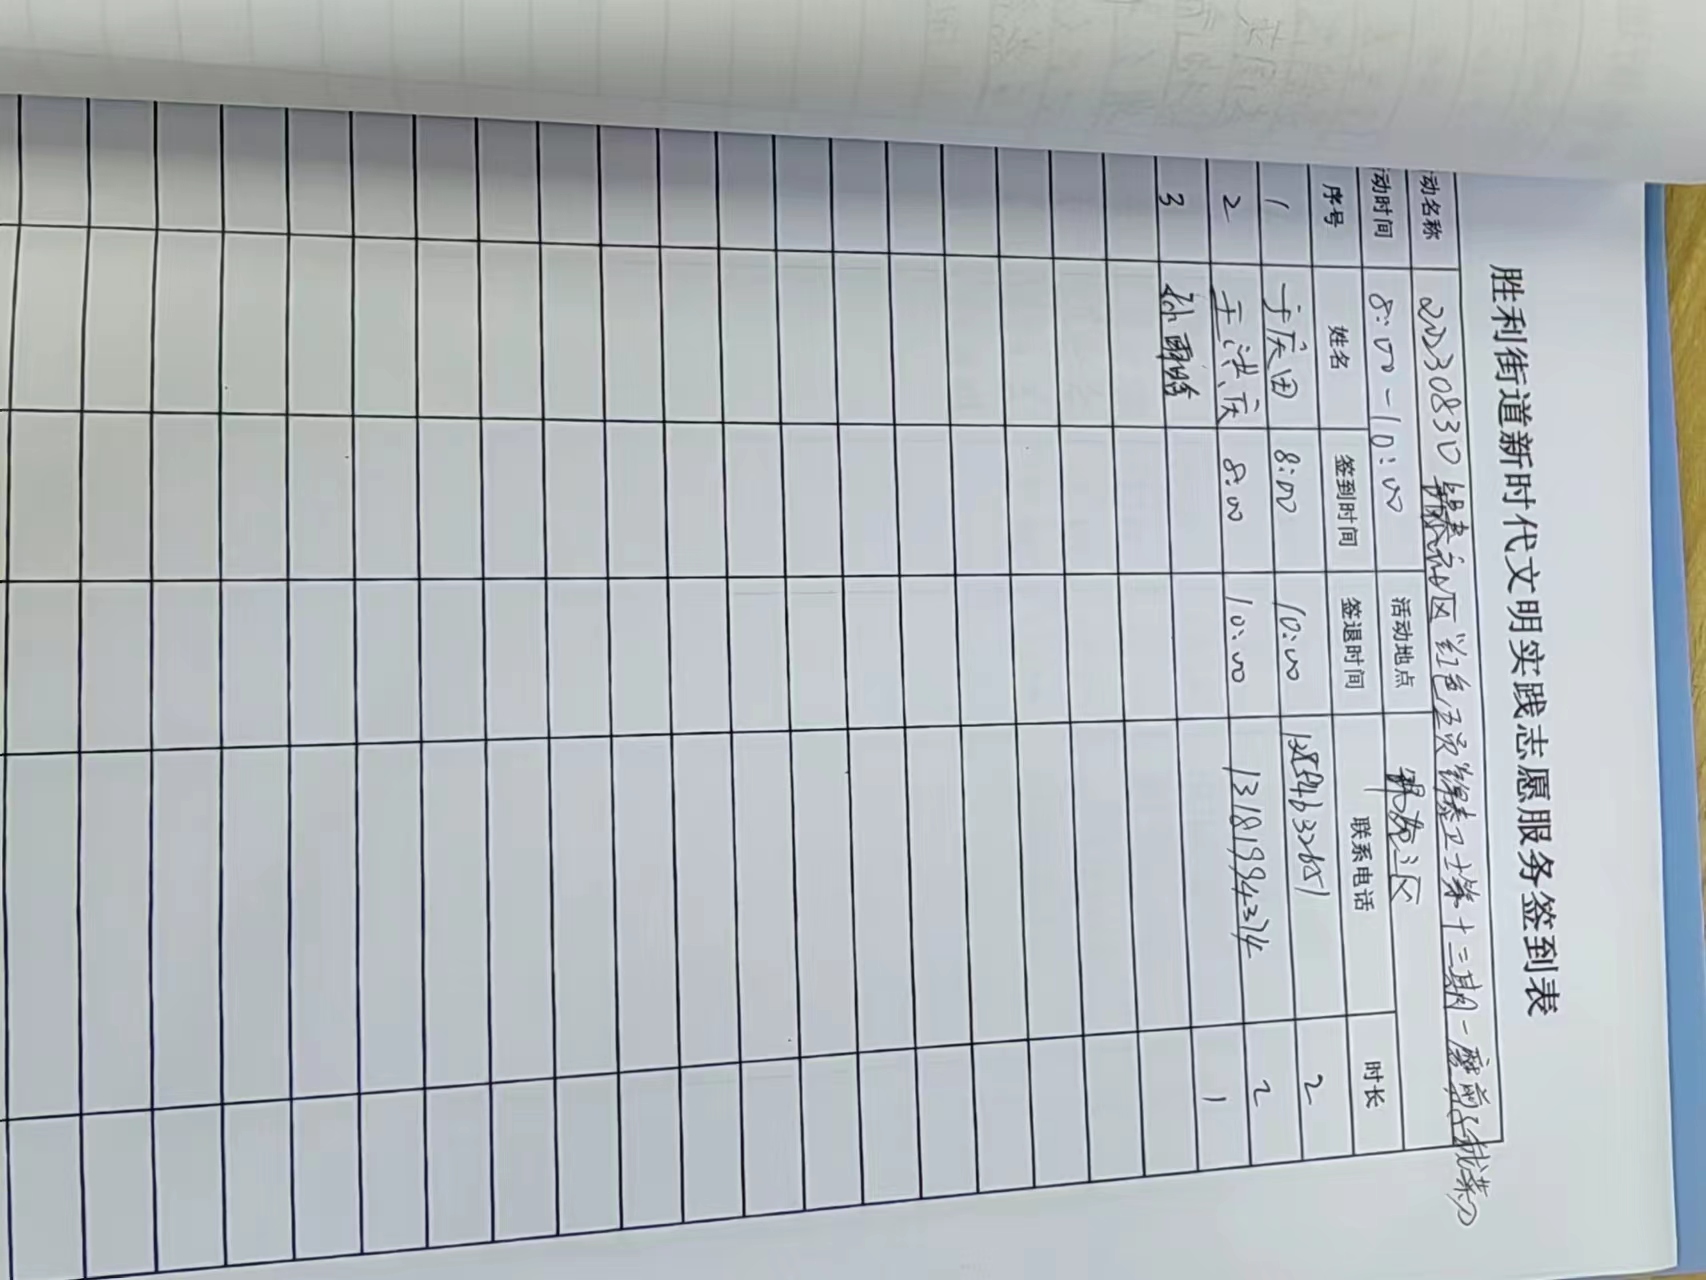 胜利街道新时代文明实践志愿服务签到表
动名称 20230830锦泰社区"红色五员锦泰卫士第十三期一磨剪子戗菜刀
动时间 8:00-10:00 活动地点 锦泰社区
序号 姓名 签到时间 签退时间 联系电话 时长
1 于庆田 8:00 10:00 2
2 于洪庆 8:00 10:00 13181994374 2
3 孙雨晴 1